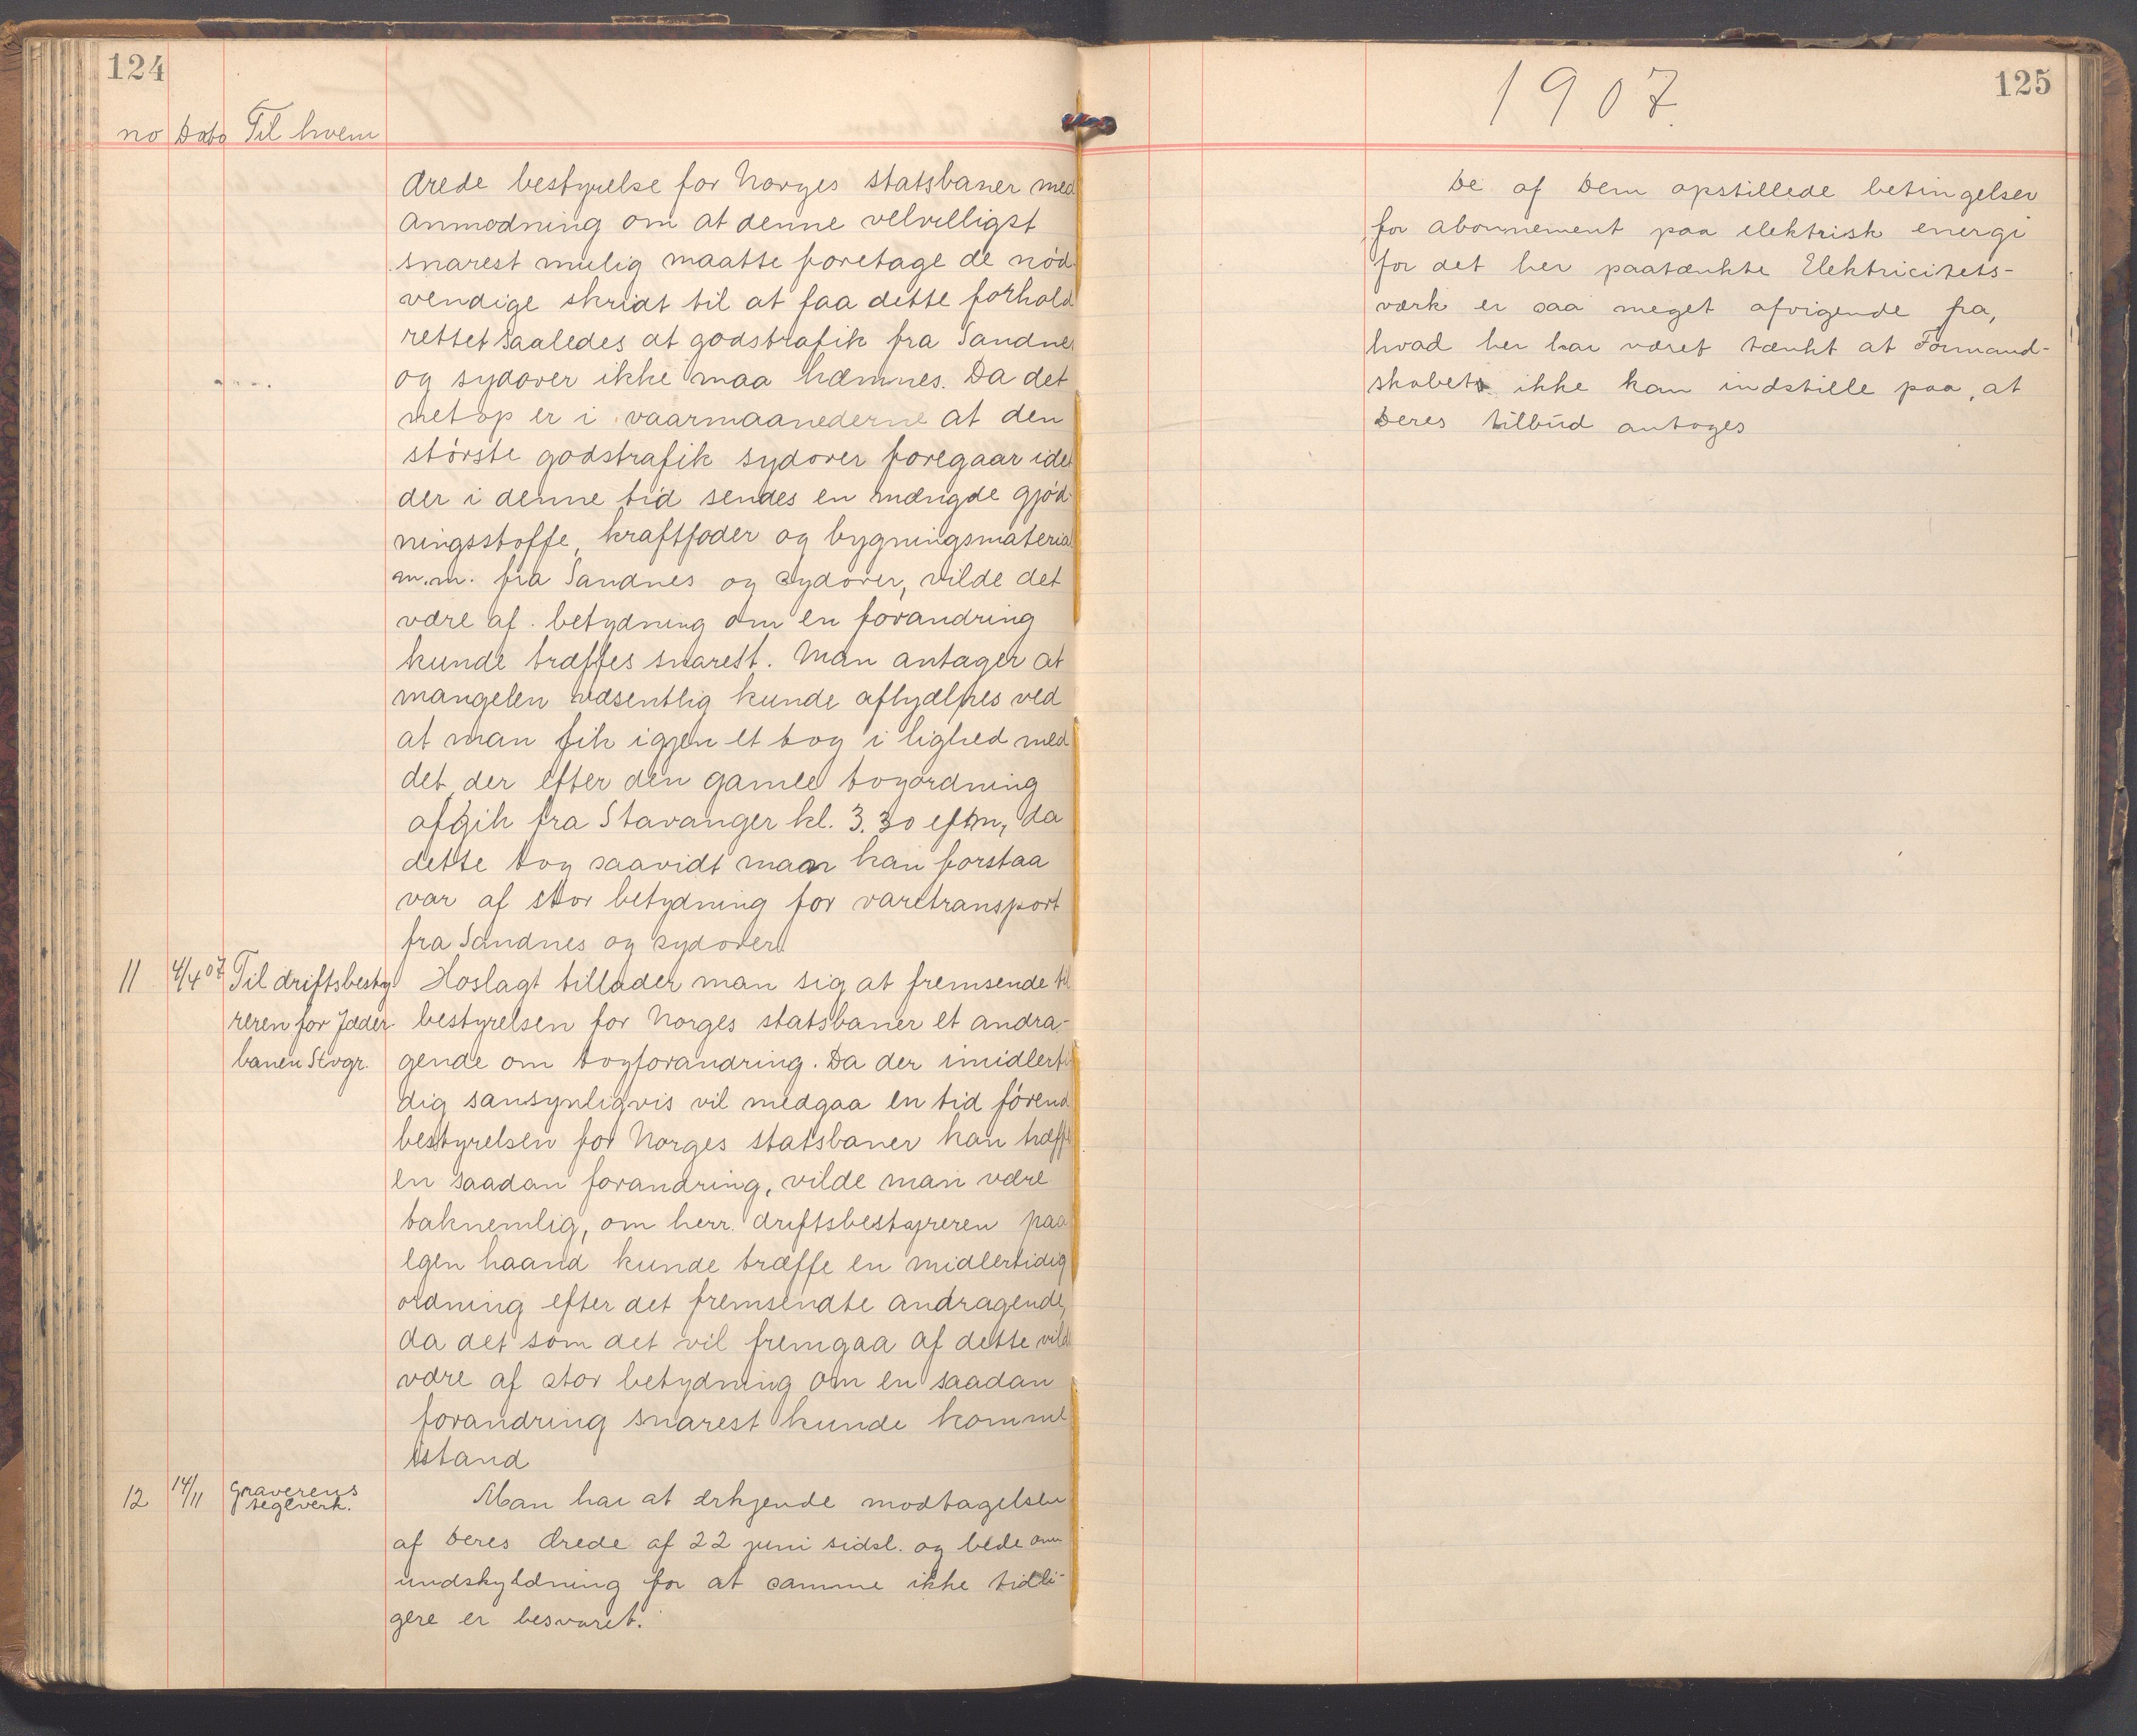 124
no Dato Til hvem
ærede bestyrelse for Norges statsbaner med
anmodning om at denne velvilligst
snarest mulig maatte foretage de nød-
vendige skridt til at faa dette forhold
rettet saaledes at godstrafik fra Sandnes
og sydover ikke maa hæmnes. Da det
netop er i vaarmaanederne at den
største godstrafik sydover foregaar idet
der i denne tid sendes en mængde gjød-
ningsstoffe, kraftfoder og bygningsmaterial
m.m. fra Sandnes og sydover, vilde det
være af betydning om en forandring
kunde træffes snarest. Man antager at
mangelen væsentlig kunde afhjælpes ved
at man fik igjen et tog i lighed med
det der efter den gamle togordning
afgik fra Stavanger kl. 3.30 eftm, da
dette tog saavidt man kan forstaa
var af stor betydning for varetransport
fra Sandnes og sydover.
11 4/4 07 Til driftsbesty Hoslagt tillader man sig at fremsende til
reren for Jæder bestyrelsen for Norges statsbaner et andra-
banen Stvgr. gende om togforandring. Da der imidlerti
dig sansynligvis vil medgaa en tid førend
bestyrelsen for Norges statsbaner kan træffe
en saadan forandring, vilde man være
taknemlig, om herr driftsbestyreren paa
egen haand kunde træffe en midlertidig
ordning efter det fremsendte andragende,
da det som det vil fremgaa af dette vilde
være af stor betydning om en saadan
forandring snarest kunde komme
istand
12 14/11 Graverens Man har at erkjende modtagelsen
teglverk. af Deres ærede af 22 juni sidsl. og bede om
undskyldning for at samme ikke tidli-
gere er besvaret.
1907.
125
De af Dem opstillede betingelser
for abonnement paa elektrisk energi
for det her paatænkte Elektricitets-
værk er saa meget afvigende fra,
hvad her har været tænkt at Formand-
skabet ikke kan indstille paa, at
Deres tilbud antages